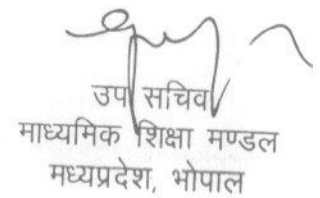 उप सचिव
माध्यमिक शिक्षा मण्डल
मध्यप्रदेश, भोपाल